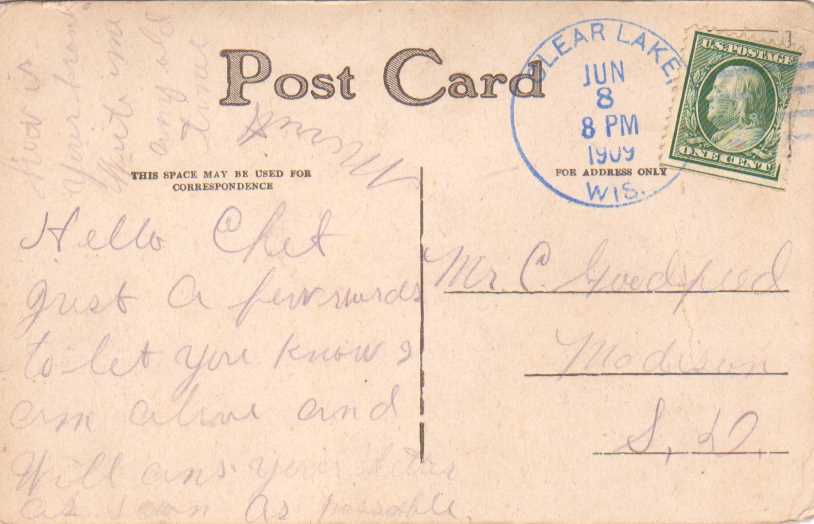 Post Card
CLEAR LAKE,
JUN
8
8 PM
1909
WIS.
U.S. POSTAGE
ONE CENT
THIS SPACE MAY BE USED FOR
CORRESPONDENCE
FOR ADDRESS ONLY
Hello Chet
Just a few words
to let you know I
am alive and
Will ans your letter
as soon as possible.
How is
Your
Write me
any old
time
Mr. C. Goodspeed
Madison
S. D.